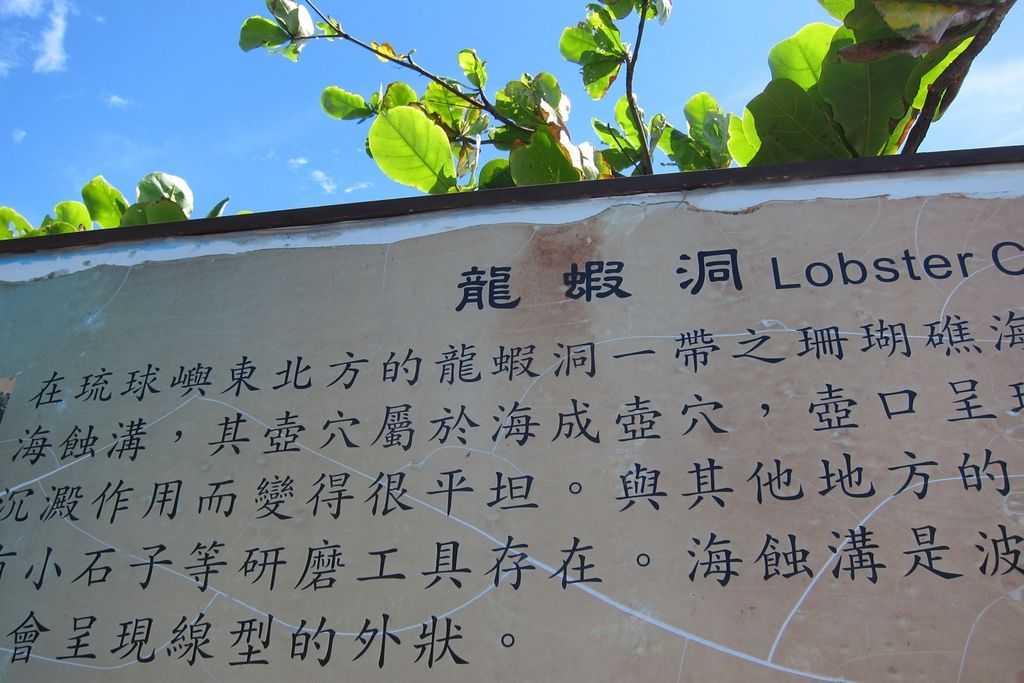 龍蝦洞 Lobster C
在琉球嶼東北方的龍蝦洞一帶之珊瑚礁海
海蝕溝，其壺穴屬於海成壺穴，壺口呈現
沉澱作用而變得很平坦。與其他地方的
方小石子等研磨工具存在。海蝕溝是波
會呈現線型的外狀。